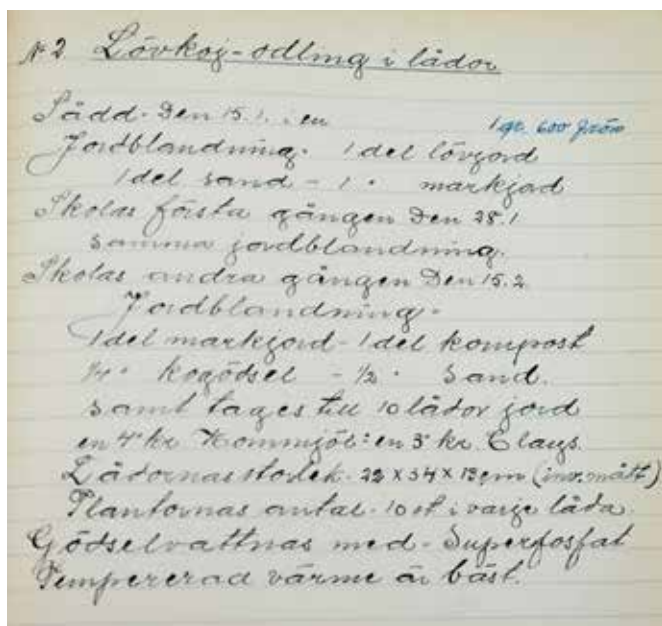 № 2 Lövkoj-odling i lådor
Sådd. Den 15.1. i en
1 gr. 600 frön
Jordblandning. 1 del lövjord
1 del sand - 1 " markjord
Skolas första gången Den 28.1
samma jordblandning.
Skolas andra gången Den 15.2
Jordblandning.
1 del markjord - 1 del kompost
1/4 " kogödsel - 1/2 " Sand.
samt tages till 10 lådor jord
en 4" kr. Hornmjöl: en 3" kr. Clays.
Lådornas storlek. 22 x 34 x 13 cm (inv. mått)
Plantornas antal. 10 st i varje låda.
Gödselvattnas med - Superfosfat
Tempererad värme är bäst.